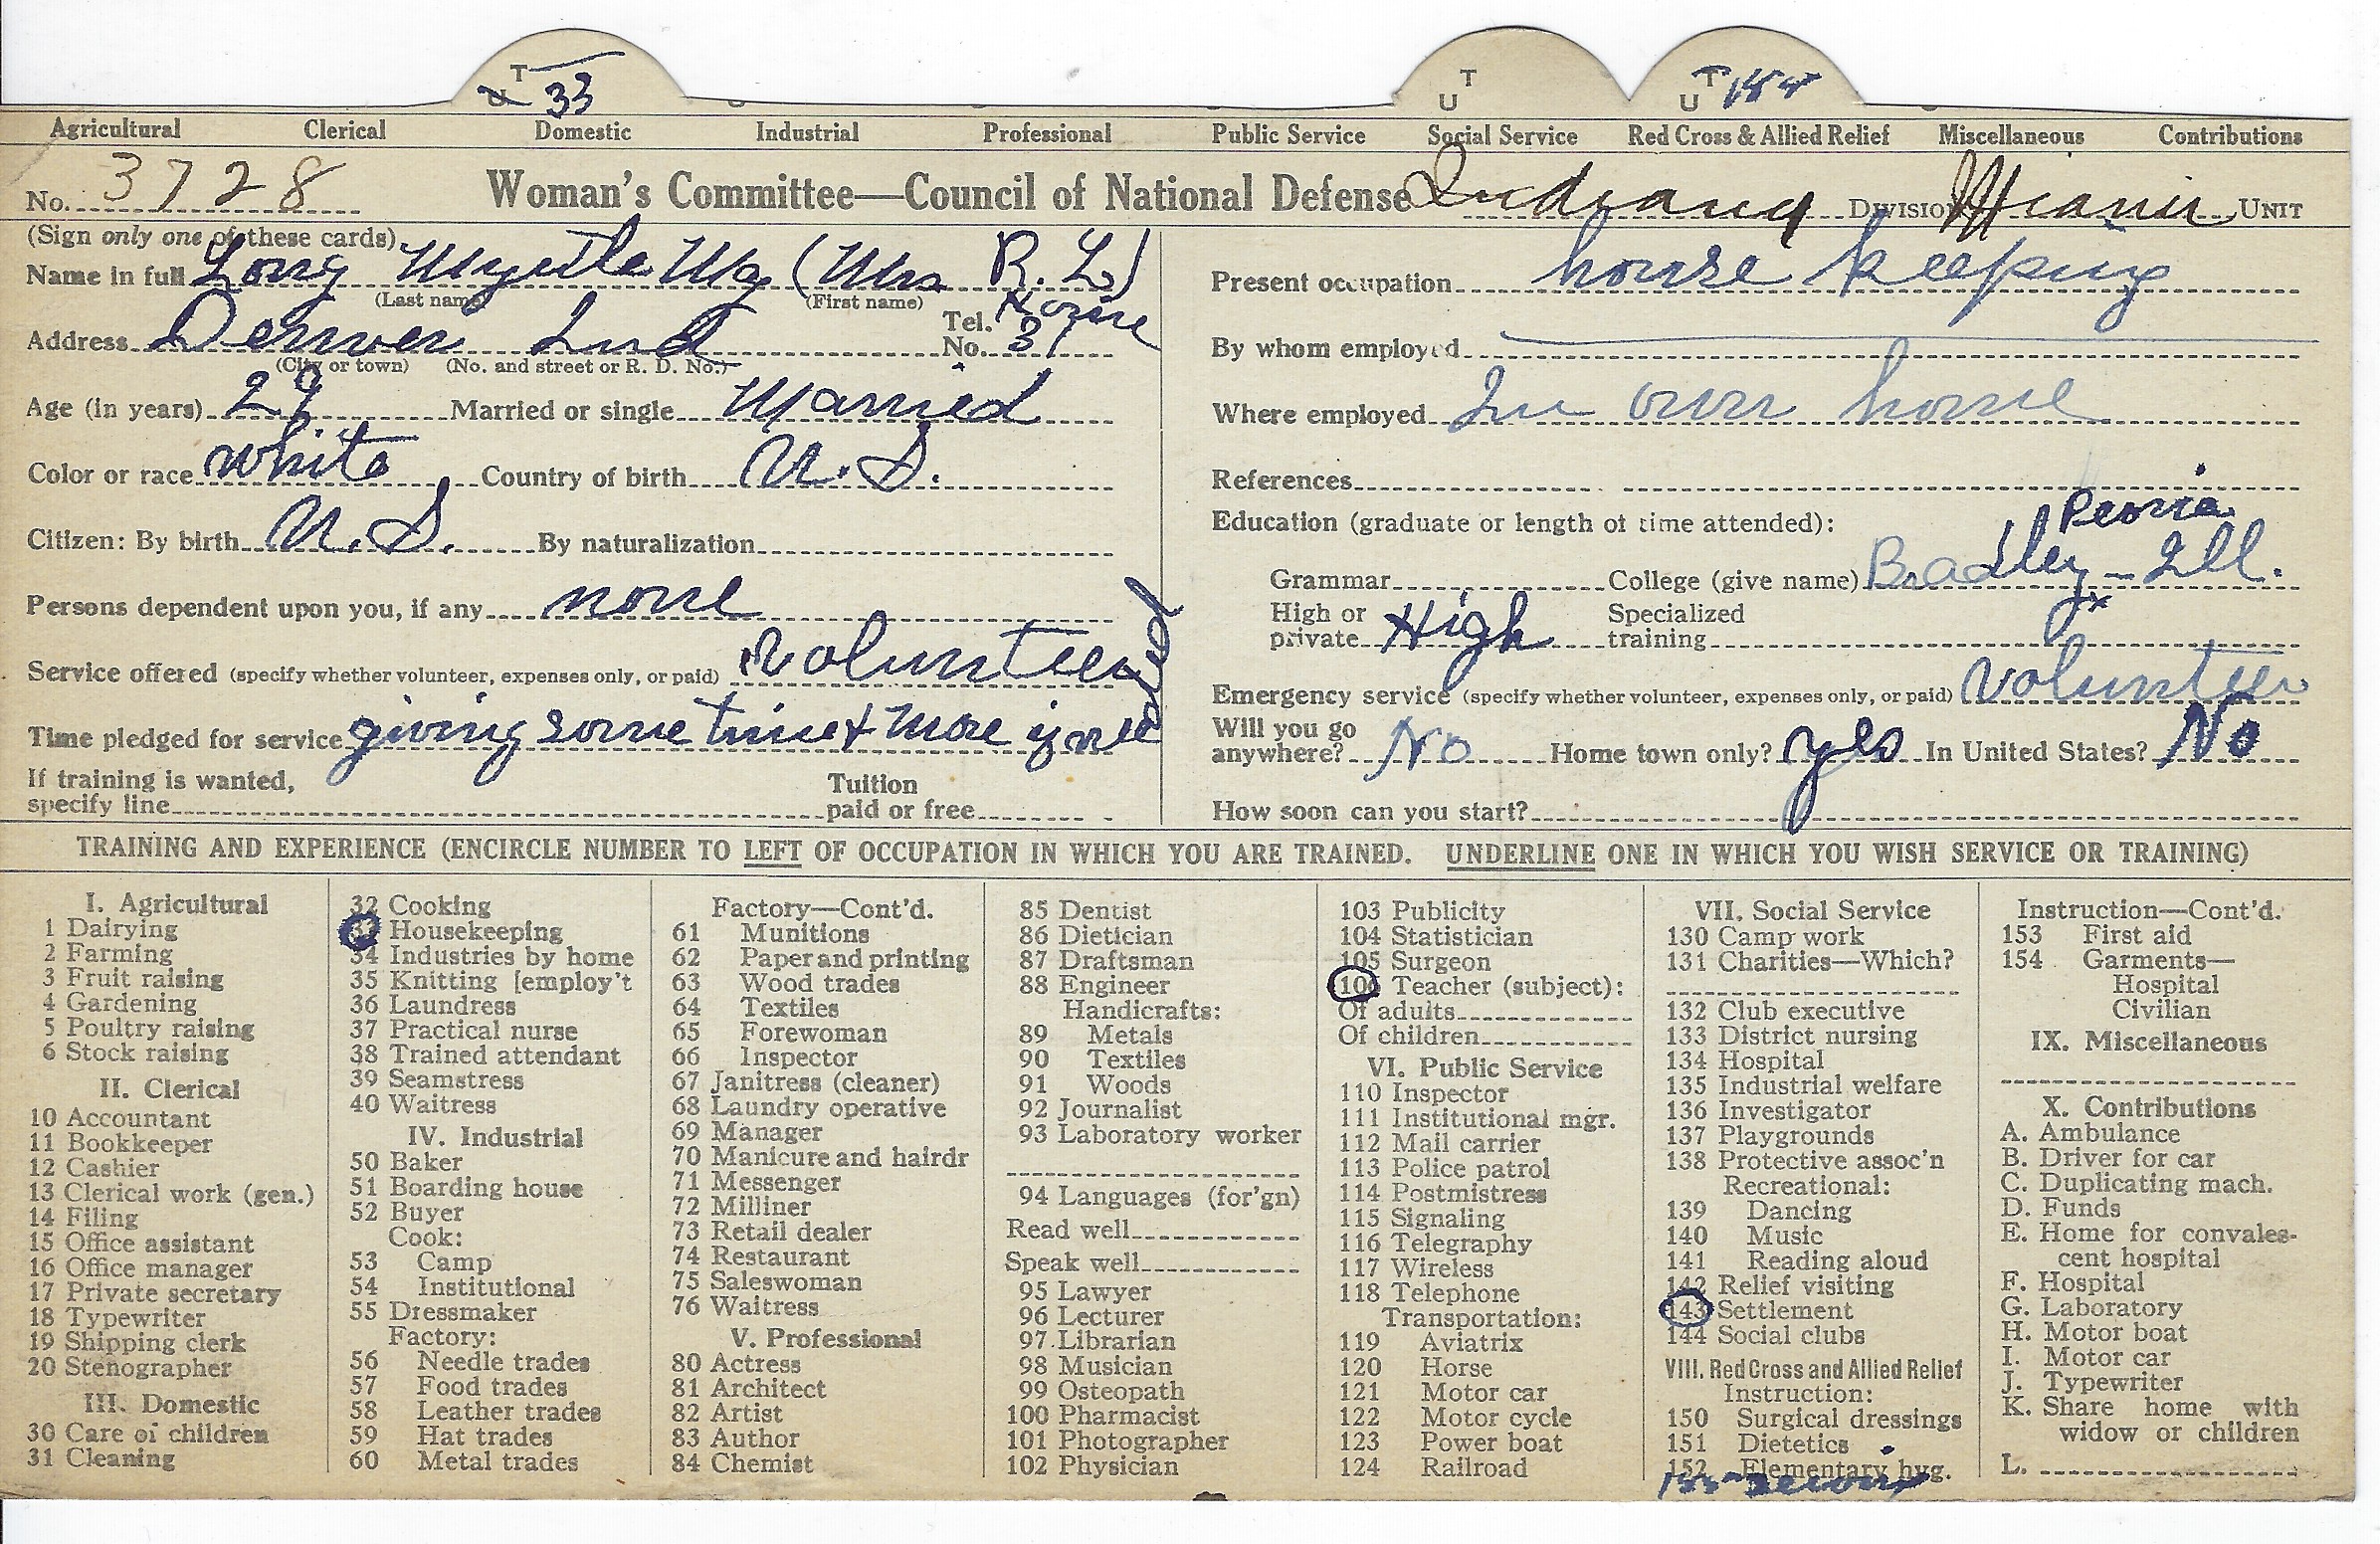 T
U 33
T
U
T
U
Agricultural Clerical Domestic Industrial Professional Public Service Social Service Red Cross & Allied Relief Miscellaneous Contributions
No. 3728 Woman's Committee—Council of National Defense Indiana DIVISION Miami UNIT
(Sign only one of these cards)
Name in full Long Myrtle (Mrs R. L)
(Last name) (First name)
Address Denver Ind Tel. No. Home 31
(City or town) (No. and street or R. D. No.)
Age (in years) 29 Married or single Married
Color or race white Country of birth U. S.
Citizen: By birth U. S. By naturalization
Persons dependent upon you, if any none
Service offered (specify whether volunteer, expenses only, or paid) Volunteer
Time pledged for service giving some time & more if needed
If training is wanted, specify line Tuition paid or free
Present occupation house keeping
By whom employed
Where employed In own home
References
Education (graduate or length of time attended):
Grammar College (give name) Bradley - Peoria Ill.
High or private High Specialized training
Emergency service (specify whether volunteer, expenses only, or paid) Volunteer
Will you go anywhere? No Home town only? yes In United States? No
How soon can you start?
TRAINING AND EXPERIENCE (ENCIRCLE NUMBER TO LEFT OF OCCUPATION IN WHICH YOU ARE TRAINED. UNDERLINE ONE IN WHICH YOU WISH SERVICE OR TRAINING)
I. Agricultural
1 Dairying
2 Farming
3 Fruit raising
4 Gardening
5 Poultry raising
6 Stock raising
II. Clerical
10 Accountant
11 Bookkeeper
12 Cashier
13 Clerical work (gen.)
14 Filing
15 Office assistant
16 Office manager
17 Private secretary
18 Typewriter
19 Shipping clerk
20 Stenographer
III. Domestic
30 Care of children
31 Cleaning
32 Cooking
33 Housekeeping
34 Industries by home
35 Knitting [employ't
36 Laundress
37 Practical nurse
38 Trained attendant
39 Seamstress
40 Waitress
IV. Industrial
50 Baker
51 Boarding house
52 Buyer
Cook:
53 Camp
54 Institutional
55 Dressmaker
Factory:
56 Needle trades
57 Food trades
58 Leather trades
59 Hat trades
60 Metal trades
Factory—Cont'd.
61 Munitions
62 Paper and printing
63 Wood trades
64 Textiles
65 Forewoman
66 Inspector
67 Janitress (cleaner)
68 Laundry operative
69 Manager
70 Manicure and hairdr
71 Messenger
72 Milliner
73 Retail dealer
74 Restaurant
75 Saleswoman
76 Waitress
V. Professional
80 Actress
81 Architect
82 Artist
83 Author
84 Chemist
85 Dentist
86 Dietician
87 Draftsman
88 Engineer
Handicrafts:
89 Metals
90 Textiles
91 Woods
92 Journalist
93 Laboratory worker
94 Languages (for'gn)
Read well
Speak well
95 Lawyer
96 Lecturer
97 Librarian
98 Musician
99 Osteopath
100 Pharmacist
101 Photographer
102 Physician
103 Publicity
104 Statistician
105 Surgeon
106 Teacher (subject):
Of adults
Of children
VI. Public Service
110 Inspector
111 Institutional mgr.
112 Mail carrier
113 Police patrol
114 Postmistress
115 Signaling
116 Telegraphy
117 Wireless
118 Telephone
Transportation:
119 Aviatrix
120 Horse
121 Motor car
122 Motor cycle
123 Power boat
124 Railroad
VII. Social Service
130 Camp work
131 Charities—Which?
132 Club executive
133 District nursing
134 Hospital
135 Industrial welfare
136 Investigator
137 Playgrounds
138 Protective assoc'n
Recreational:
139 Dancing
140 Music
141 Reading aloud
142 Relief visiting
143 Settlement
144 Social clubs
VIII. Red Cross and Allied Relief
Instruction:
150 Surgical dressings
151 Dietetics
152 Elementary hyg.
Instruction—Cont'd.
153 First aid
154 Garments—
Hospital
Civilian
IX. Miscellaneous
X. Contributions
A. Ambulance
B. Driver for car
C. Duplicating mach.
D. Funds
E. Home for convalescent hospital
F. Hospital
G. Laboratory
H. Motor boat
I. Motor car
J. Typewriter
K. Share home with
widow or children
L.